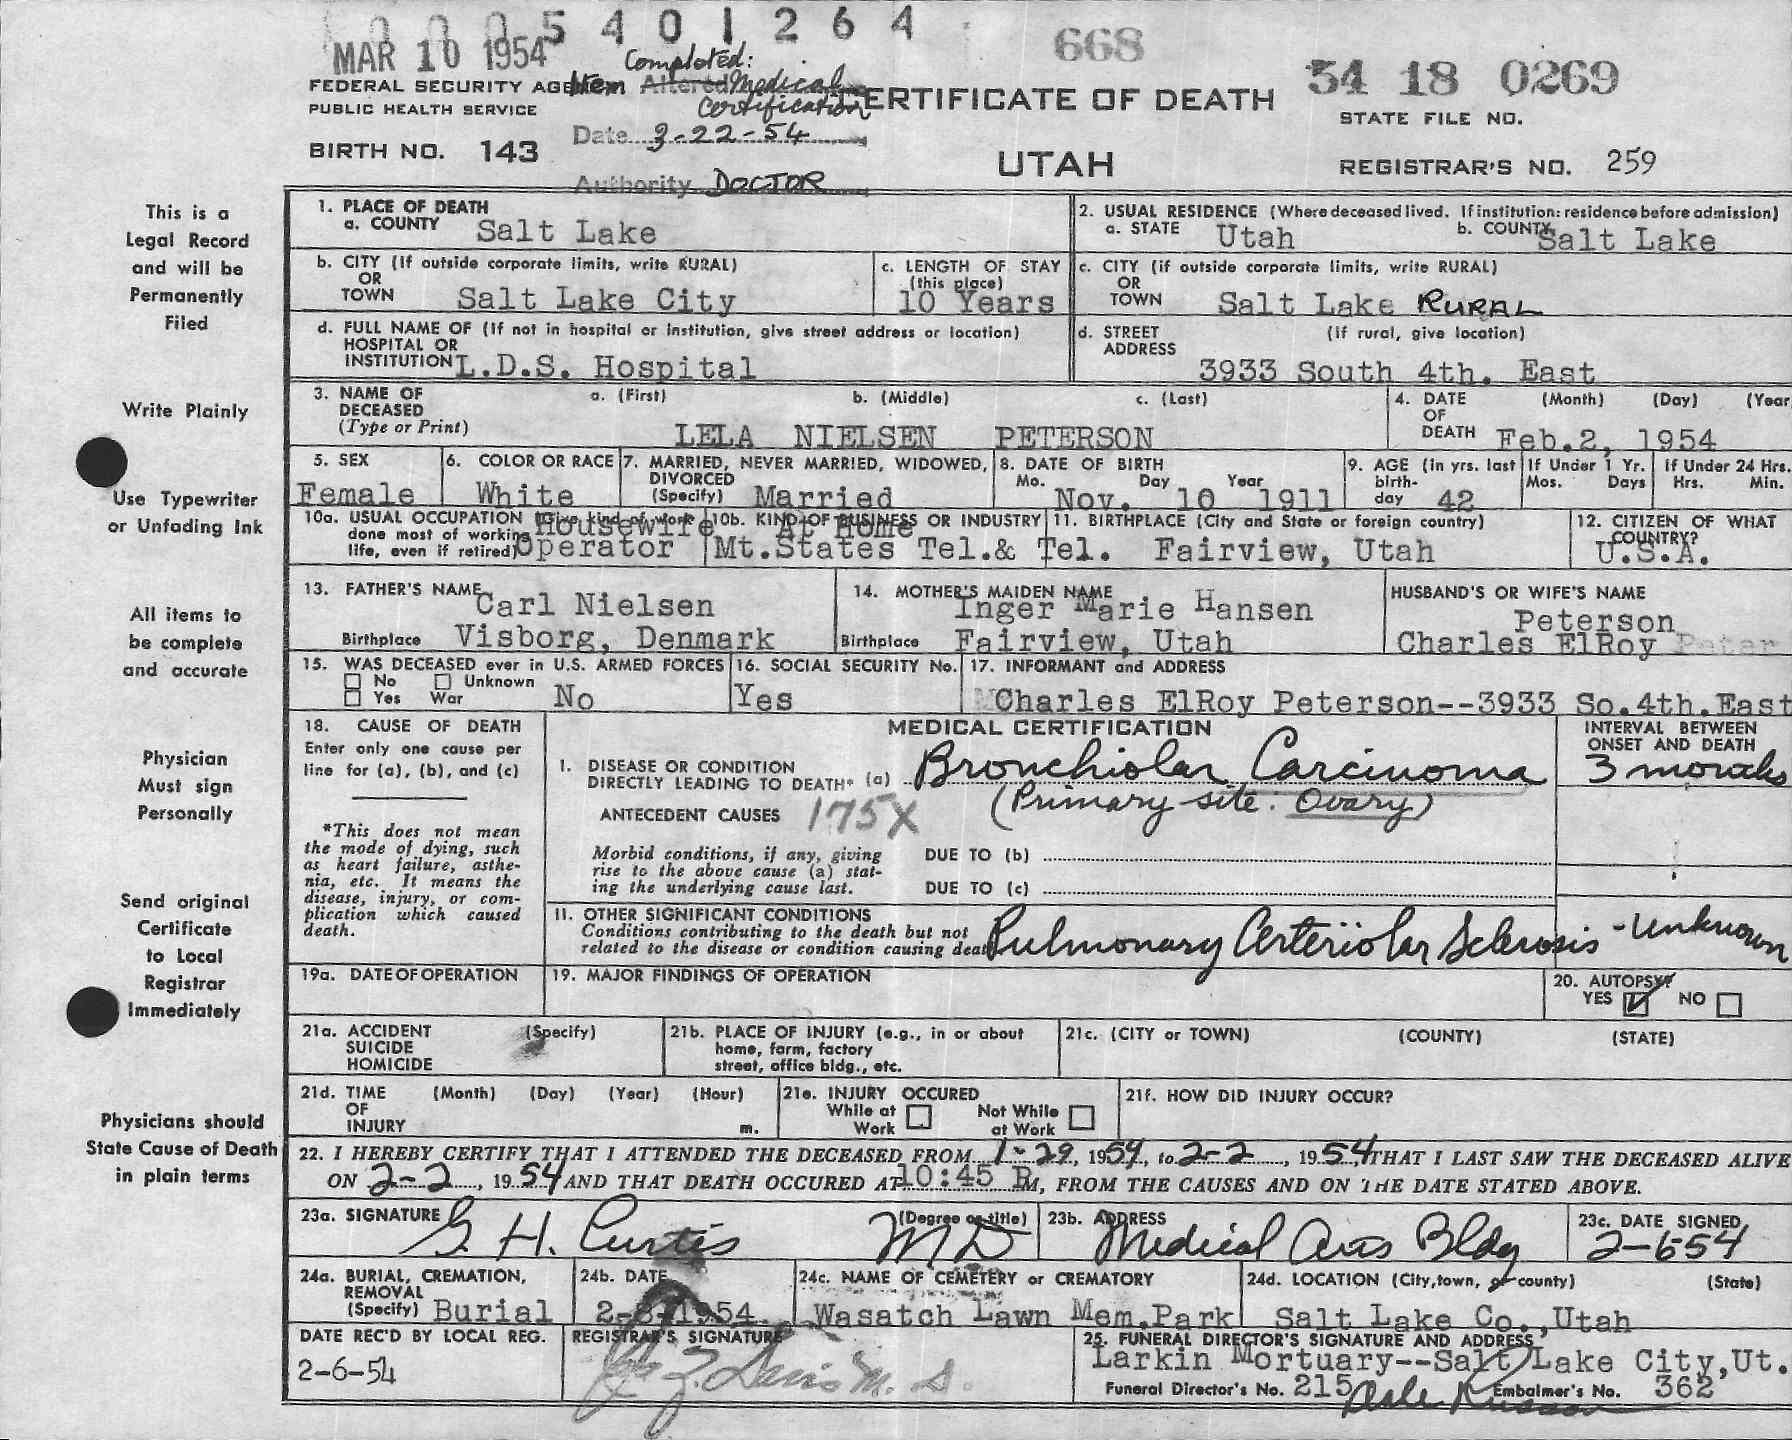 5401264
MAR 10 1954
668
54 18 0269
STATE FILE NO.
FEDERAL SECURITY AGENCY
PUBLIC HEALTH SERVICE
Completed:
Item Altered Medical Certification
Date 3-22-54
Authority DOCTOR
BIRTH NO. 143
CERTIFICATE OF DEATH
UTAH
REGISTRAR'S NO. 259
This is a
Legal Record
and will be
Permanently
Filed
Write Plainly
Use Typewriter
or Unfading Ink
All items to
be complete
and accurate
Physician
Must sign
Personally
Send original
Certificate
to Local
Registrar
Immediately
Physicians should
State Cause of Death
in plain terms
1. PLACE OF DEATH
a. COUNTY Salt Lake
2. USUAL RESIDENCE (Where deceased lived. If institution: residence before admission)
a. STATE Utah b. COUNTY Salt Lake
b. CITY (If outside corporate limits, write RURAL)
OR
TOWN Salt Lake City
c. LENGTH OF STAY
(this place)
10 Years
c. CITY (if outside corporate limits, write RURAL)
OR
TOWN Salt Lake RURAL
d. FULL NAME OF (If not in hospital or institution, give street address or location)
HOSPITAL OR
INSTITUTION L.D.S. Hospital
d. STREET (If rural, give location)
ADDRESS
3933 South 4th. East
3. NAME OF a. (First) b. (Middle) c. (Last)
DECEASED
(Type or Print) LELA NIELSEN PETERSON
4. DATE (Month) (Day) (Year
OF
DEATH Feb.2, 1954
5. SEX
Female
6. COLOR OR RACE
White
7. MARRIED, NEVER MARRIED, WIDOWED,
DIVORCED
(Specify) Married
8. DATE OF BIRTH
Mo. Day Year
Nov. 10 1911
9. AGE (in yrs. last
birth-
day 42
If Under 1 Yr.
Mos. Days
If Under 24 Hrs.
Hrs. Min.
10a. USUAL OCCUPATION (Give kind of work
done most of working
life, even if retired) Housewife
Operator
10b. KIND OF BUSINESS OR INDUSTRY
At Home
Mt.States Tel.& Tel.
11. BIRTHPLACE (City and State or foreign country)
Fairview, Utah
12. CITIZEN OF WHAT
COUNTRY?
U.S.A.
13. FATHER'S NAME Carl Nielsen
Birthplace Visborg, Denmark
14. MOTHER'S MAIDEN NAME
Inger Marie Hansen
Birthplace Fairview, Utah
HUSBAND'S OR WIFE'S NAME
Peterson
Charles ElRoy Peter
15. WAS DECEASED ever in U.S. ARMED FORCES
No Unknown
Yes War No
16. SOCIAL SECURITY No.
Yes
17. INFORMANT and ADDRESS
Charles ElRoy Peterson--3933 So.4th.East
18. CAUSE OF DEATH
Enter only one cause per
line for (a), (b), and (c)
*This does not mean
the mode of dying, such
as heart failure, asthe-
nia, etc. It means the
disease, injury, or com-
plication which caused
death.
MEDICAL CERTIFICATION
INTERVAL BETWEEN
ONSET AND DEATH
I. DISEASE OR CONDITION
DIRECTLY LEADING TO DEATH* (a) Bronchiolar Carcinoma 3 months
(Primary site: Ovary)
ANTECEDENT CAUSES 175X
Morbid conditions, if any, giving
rise to the above cause (a) stat-
ing the underlying cause last.
DUE TO (b)
DUE TO (c)
II. OTHER SIGNIFICANT CONDITIONS
Conditions contributing to the death but not
related to the disease or condition causing death Pulmonary Arteriolar Sclerosis - Unknown
19a. DATE OF OPERATION
19. MAJOR FINDINGS OF OPERATION
20. AUTOPSY?
YES NO
21a. ACCIDENT (Specify)
SUICIDE
HOMICIDE
21b. PLACE OF INJURY (e.g., in or about
home, farm, factory
street, office bldg., etc.
21c. (CITY or TOWN) (COUNTY) (STATE)
21d. TIME (Month) (Day) (Year) (Hour)
OF
INJURY m.
21e. INJURY OCCURED
While at Not While
Work at Work
21f. HOW DID INJURY OCCUR?
22. I HEREBY CERTIFY THAT I ATTENDED THE DECEASED FROM 1-29, 1954, to 2-2, 1954, THAT I LAST SAW THE DECEASED ALIVE
ON 2-2, 1954 AND THAT DEATH OCCURED AT 10:45 P.M, FROM THE CAUSES AND ON THE DATE STATED ABOVE.
23a. SIGNATURE (Degree or title)
G. H. Curtis MD
23b. ADDRESS
Medical Arts Bldg
23c. DATE SIGNED
2-6-54
24a. BURIAL, CREMATION,
REMOVAL
(Specify) Burial
24b. DATE
2-8-1954
24c. NAME OF CEMETERY or CREMATORY
Wasatch Lawn Mem.Park
24d. LOCATION (City, town, or county) (State)
Salt Lake Co.,Utah
DATE REC'D BY LOCAL REG.
2-6-54
REGISTRAR'S SIGNATURE
M.D.
25. FUNERAL DIRECTOR'S SIGNATURE AND ADDRESS
Larkin Mortuary--Salt Lake City,Ut.
Funeral Director's No. 215 Embalmer's No. 362